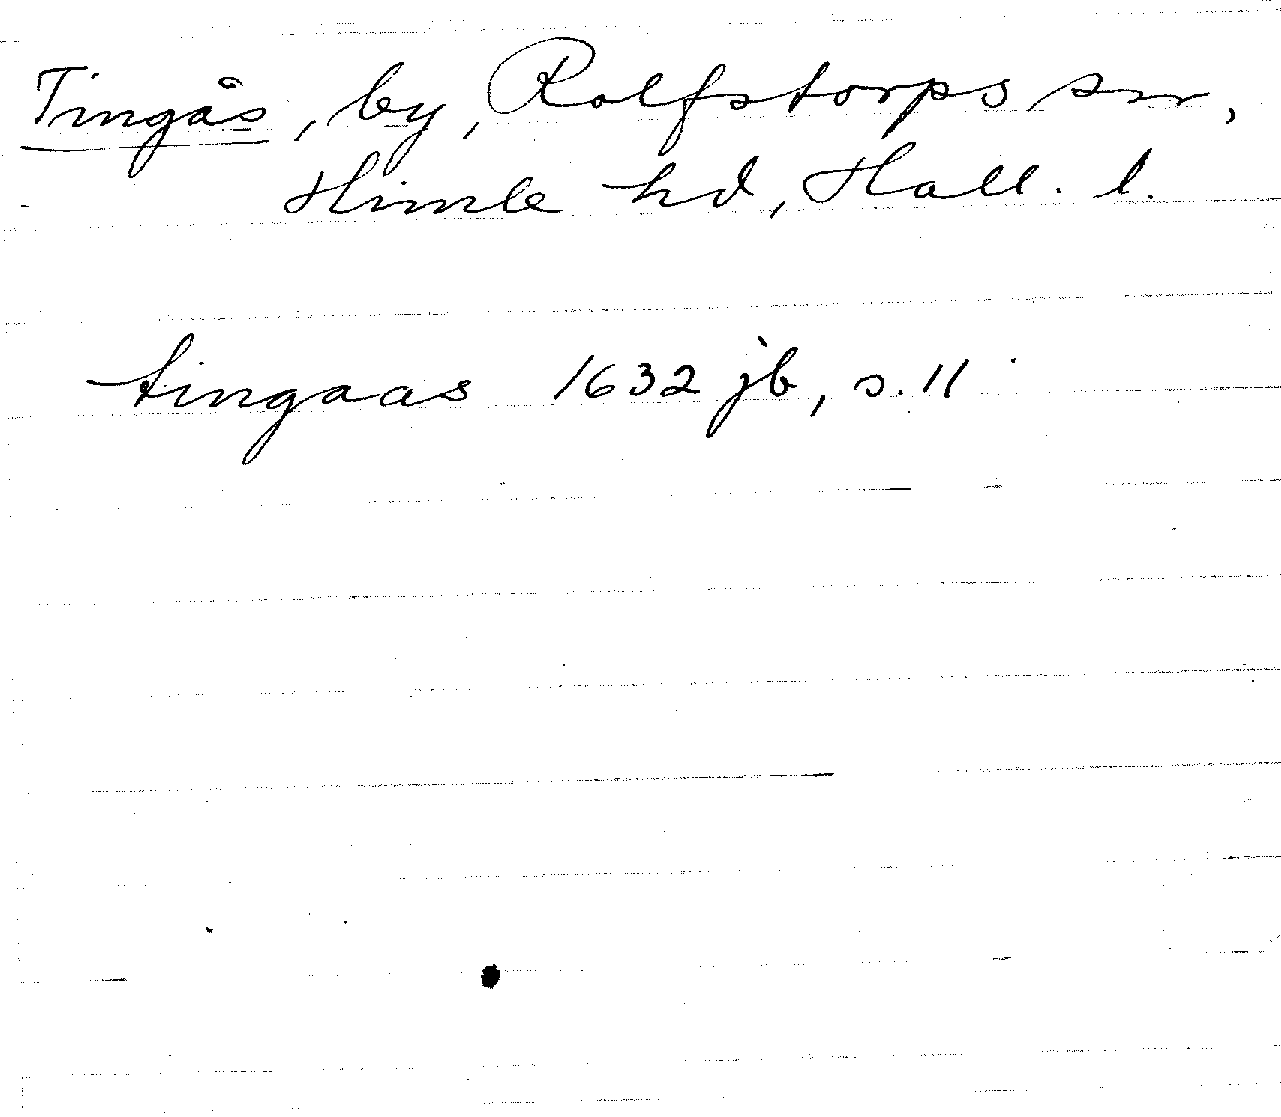 Tingås, by, Rolfstorps sn,
Himle hd, Hall. l.
tingaas 1632 jb, s. 11